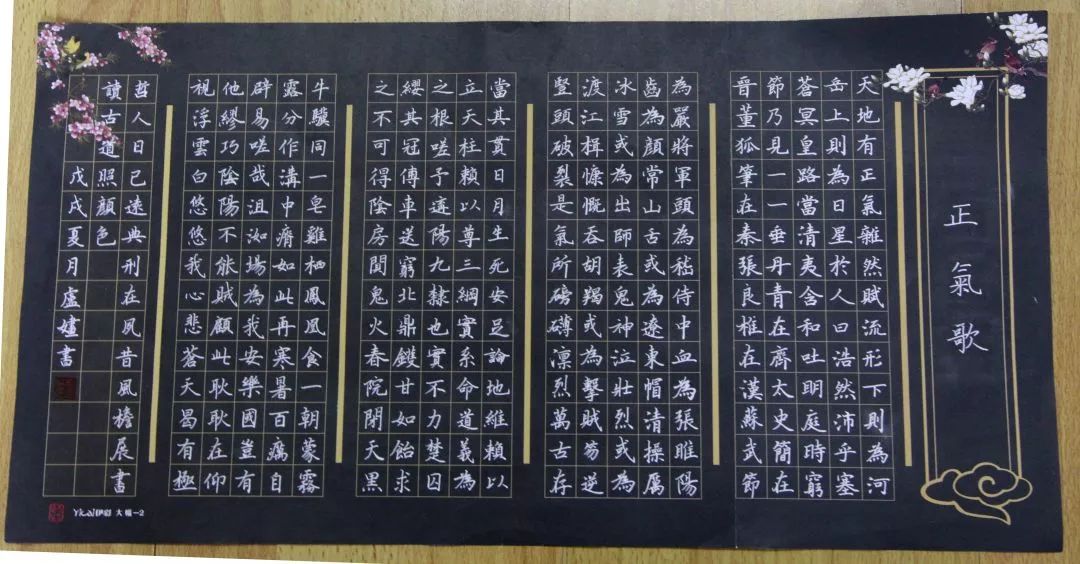 正氣歌
天地有正氣雜然賦流形下則為河
岳上則為日星於人曰浩然沛乎塞
蒼冥皇路當清夷含和吐明庭時窮
節乃見一一垂丹青在齊太史簡在
晉董狐筆在秦張良椎在漢蘇武節
為嚴將軍頭為嵇侍中血為張睢陽
齒為顏常山舌或為遼東帽清操厲
冰雪或為出師表鬼神泣壯烈或為
渡江楫慷慨吞胡羯或為擊賊笏逆
豎頭破裂是氣所磅礴凜烈萬古存
當其貫日月生死安足論地維賴以
立天柱賴以尊三綱實系命道義為
之根嗟予遘陽九隸也實不力楚囚
纓其冠傳車送窮北鼎鑊甘如飴求
之不可得陰房闃鬼火春院閉天黑
牛驥同一皂雞栖鳳凰食一朝蒙霧
露分作溝中瘠如此再寒暑百癘自
辟易嗟哉沮洳場為我安樂國豈有
他繆巧陰陽不能賊顧此耿耿在仰
視浮雲白悠悠我心悲蒼天曷有極
哲人日已遠典刑在夙昔風檐展書
讀古道照顏色
戊戌夏月盧書